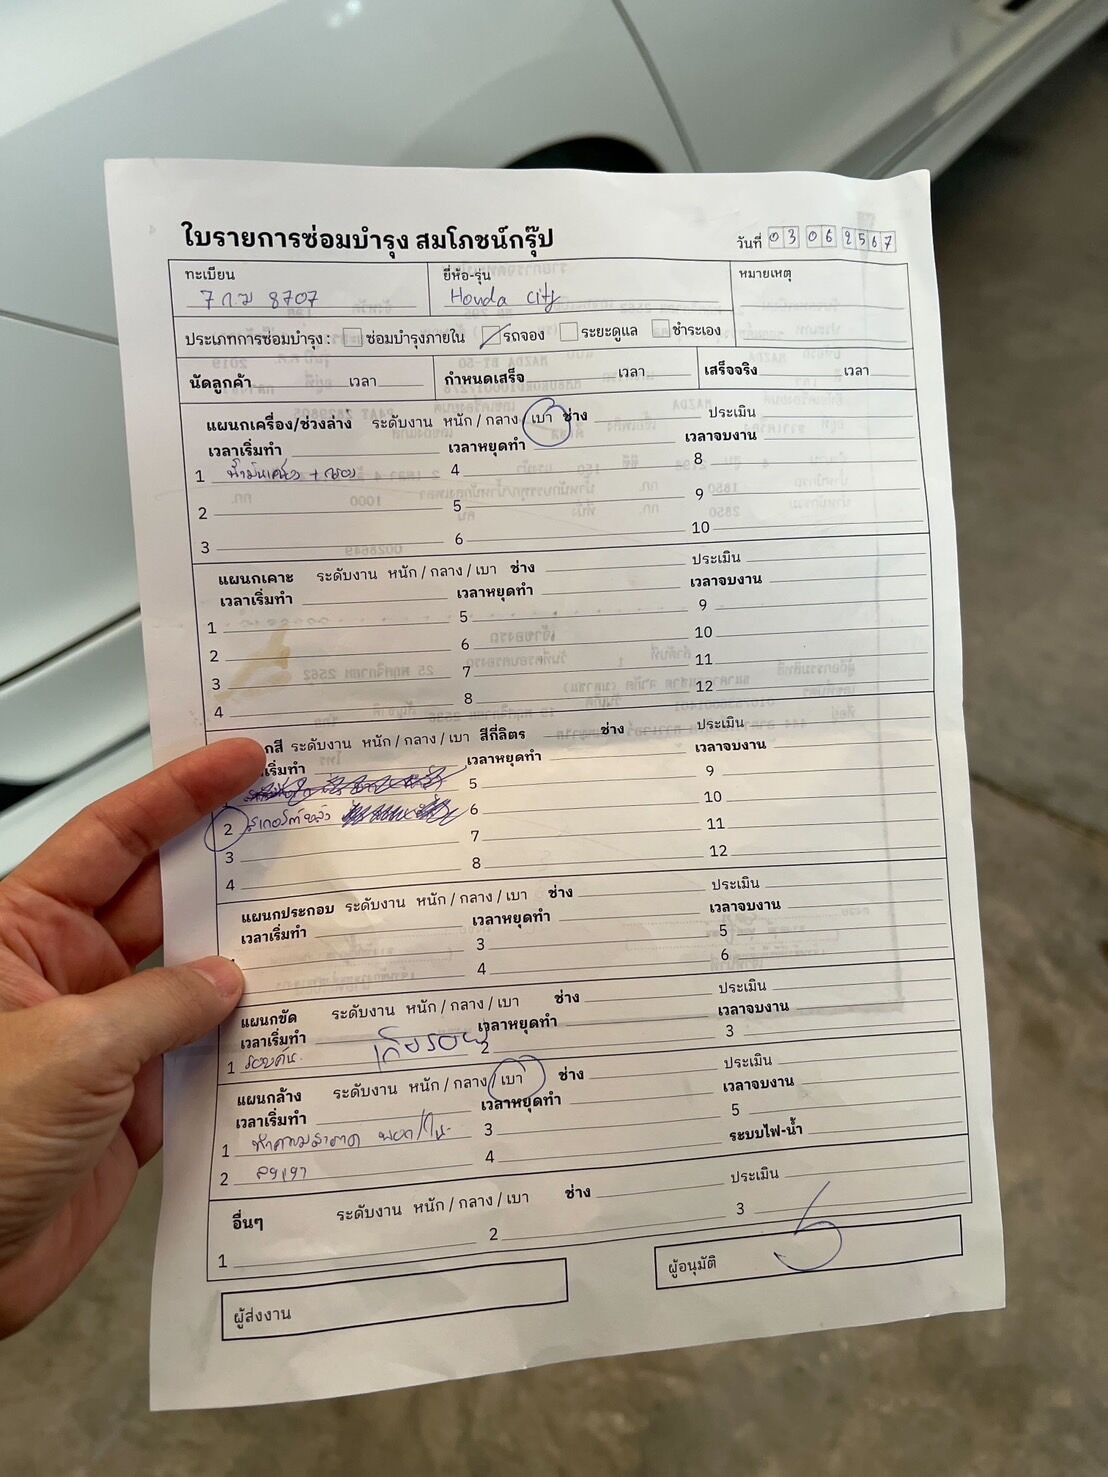 ใบรายการซ่อมบำรุง สมโภชน์กรุ๊ป
วันที่ 03 06 2567
ทะเบียน 7 กม 8707
ยี่ห้อ-รุ่น Honda City
หมายเหตุ
ประเภทการซ่อมบำรุง : ซ่อมบำรุงภายใน รถจอง ระยะดูแล ชำระเอง
นัดลูกค้า เวลา กำหนดเสร็จ เวลา เสร็จจริง เวลา
แผนกเครื่อง/ช่วงล่าง ระดับงาน หนัก / กลาง / เบา ช่าง ประเมิน
เวลาเริ่มทำ เวลาหยุดทำ เวลาจบงาน
1 น้ำมันเครื่อง + กรอง 4 8
2 5 9
3 6 10
แผนกเคาะ ระดับงาน หนัก / กลาง / เบา ช่าง ประเมิน
เวลาเริ่มทำ เวลาหยุดทำ เวลาจบงาน
1 5 9
2 6 10
3 7 11
4 8 12
กสี ระดับงาน หนัก / กลาง / เบา สีกี่ลิตร ช่าง ประเมิน
เริ่มทำ เวลาหยุดทำ เวลาจบงาน
5 9
2 สเกิร์ตหลัง 6 10
3 7 11
4 8 12
แผนกประกอบ ระดับงาน หนัก / กลาง / เบา ช่าง ประเมิน
เวลาเริ่มทำ เวลาหยุดทำ เวลาจบงาน
3 5
4 6
แผนกขัด ระดับงาน หนัก / กลาง / เบา ช่าง ประเมิน
เวลาเริ่มทำ เวลาหยุดทำ เวลาจบงาน
1 รอบคัน เก็บรอย 2 3
แผนกล้าง ระดับงาน หนัก / กลาง / เบา ช่าง ประเมิน
เวลาเริ่มทำ เวลาหยุดทำ เวลาจบงาน
1 ทำความสะอาด นอก/ใน 3 5
2 ลงเงา 4 ระบบไฟ-น้ำ
อื่นๆ ระดับงาน หนัก / กลาง / เบา ช่าง ประเมิน
1 2 3
ผู้ส่งงาน ผู้อนุมัติ